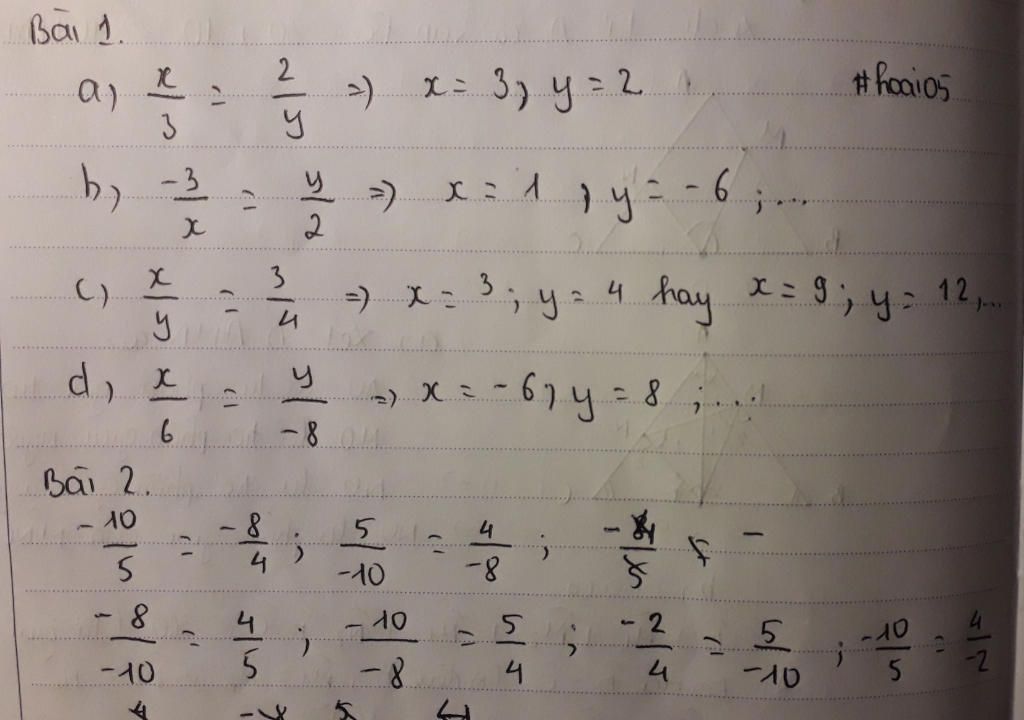 Bài 1.
#hoai05
a) x/3 = 2/y => x = 3, y = 2
b) -3/x = y/2 => x = 1, y = -6; ...
c) x/y = 3/4 => x = 3; y = 4 hay x = 9; y = 12,...
d) x/6 = y/-8 => x = -6, y = 8; ...
Bài 2.
-10/5 = -8/4; 5/-10 = 4/-8;
-8/-10 = 4/5; -10/-8 = 5/4; -2/4 = 5/-10; -10/5 = 4/-2